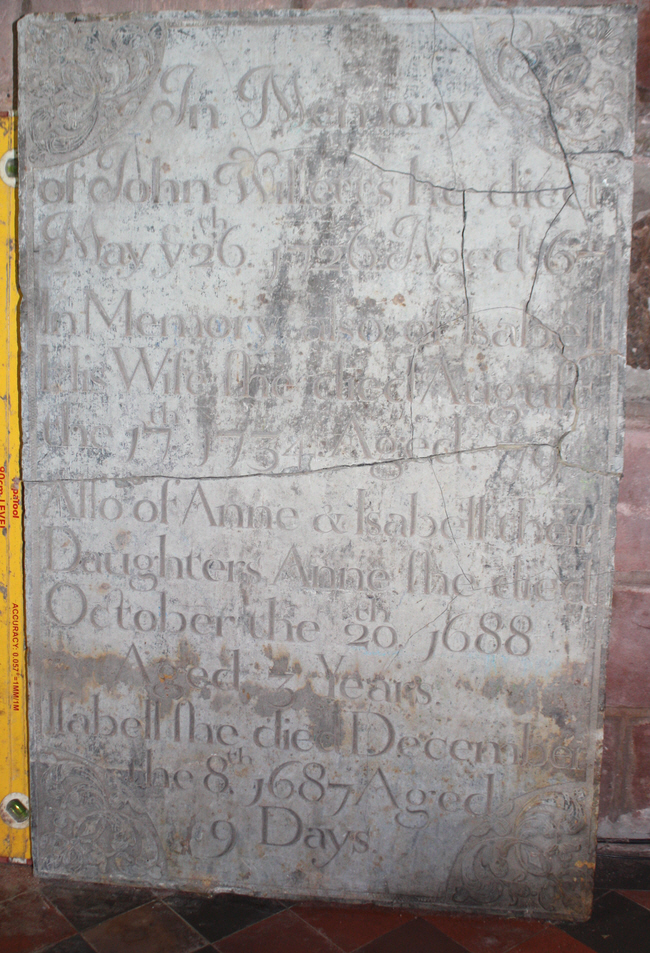 In Memory
of John Willetts he died
May yͤ 26th 1726 Aged 67
In Memory also of Isabell
his Wife ſhe died Auguſt
the 17th 1734 Aged 79
Alſo of Anne & Iſabell their
Daughters Anne ſhe died
October the 20th 1688
Aged 3 Years
Iſabell ſhe died December
the 8th 1687 Aged
19 Days.
90cm LEVEL
ACCURACY: 0.057°=1MM/1M